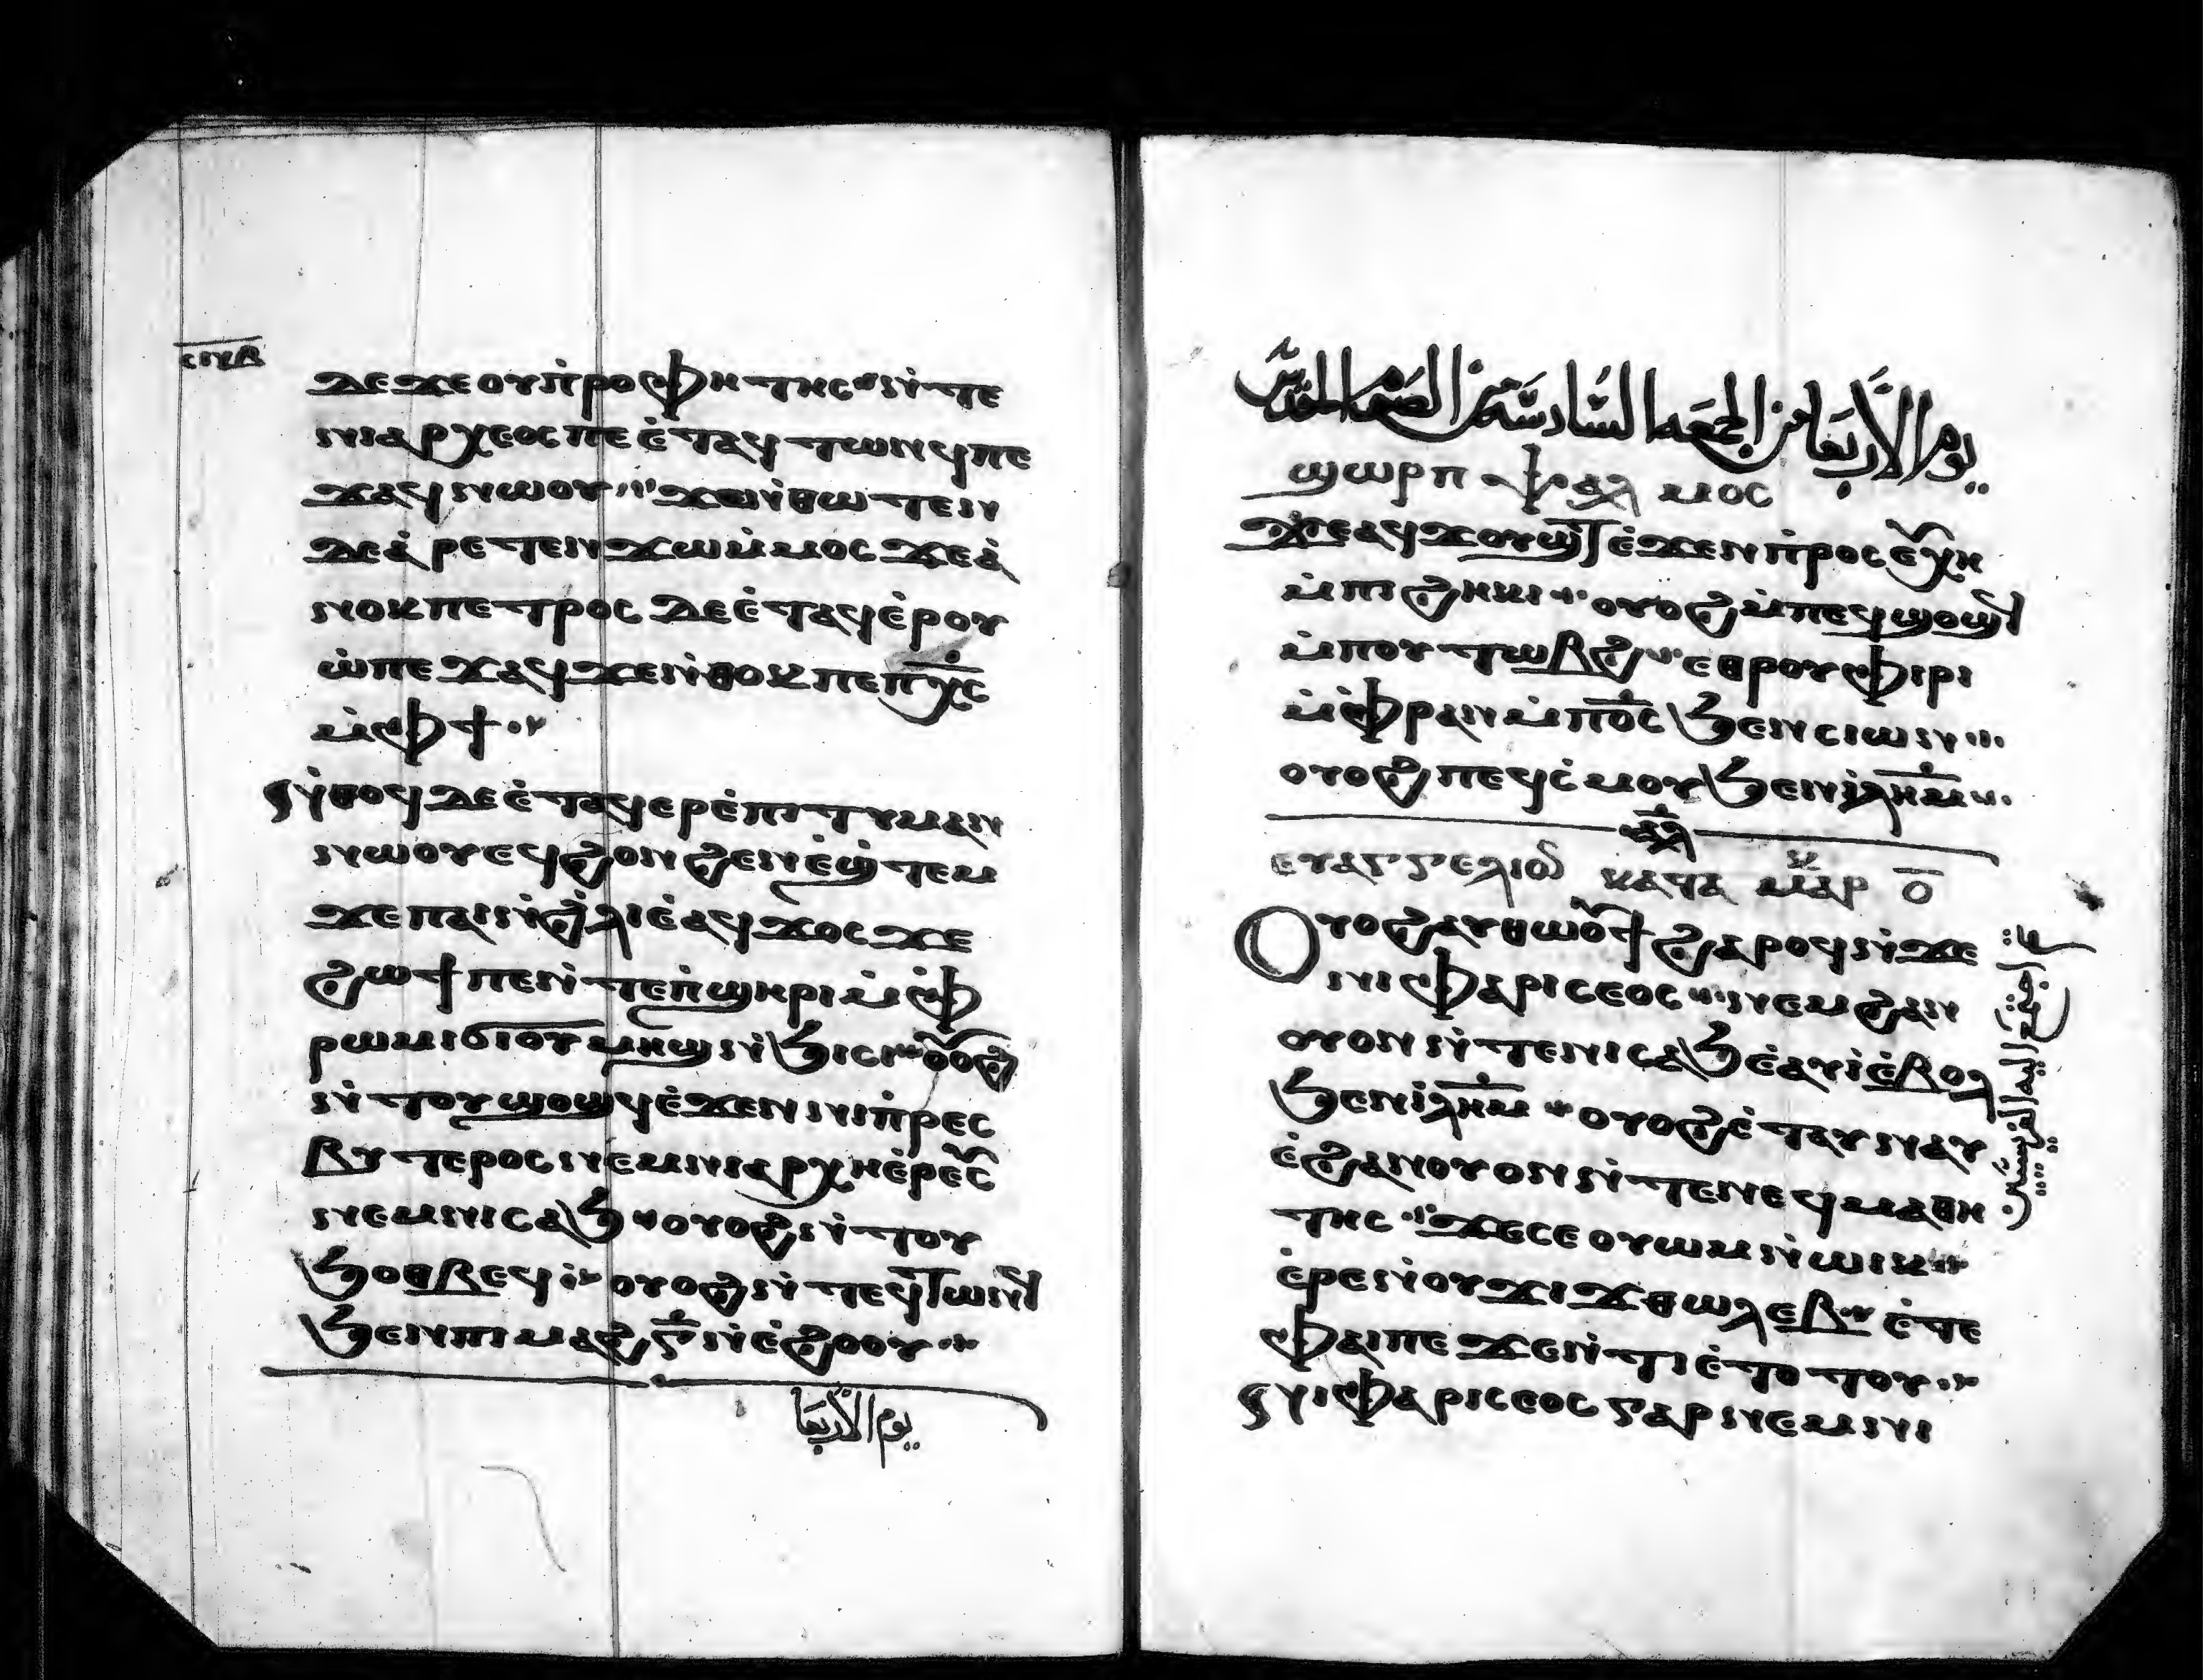 ⲇⲉ ϫⲉ ⲟⲩⲡ̇ⲣⲟⲫⲏⲧⲏⲥ ⲛ̇ⲧⲉ
ⲛⲓⲁⲣⲭⲉⲟⲥ ⲡⲉ ⲉ̇ⲧⲁϥⲧⲱⲛϥ ⲡⲉ
ϫⲁϥ ⲛⲱⲟⲩ ϫⲉ ⲛ̇ⲑⲱⲧⲉⲛ
ⲇⲉ ⲁ̇ⲣⲉⲧⲉⲛϫⲱ ⲙ̇ⲙⲟⲥ ϫⲉ ⲁ̇
ⲛⲟⲕ ⲡⲉⲧⲣⲟⲥ ⲇⲉ ⲉ̇ⲧⲁϥⲉ̇ⲣⲟⲩ
ⲱ̇ ⲡⲉϫⲁϥ ϫⲉ ⲛ̇ⲑⲟⲕ ⲡⲉ ⲡⲭ̅ⲥ̅
ⲙ̇ⲫϯ
ⲛ̇ⲑⲟϥ ⲇⲉ ⲉ̇ⲧⲁϥⲉⲣⲉ̇ⲡⲓⲧⲩⲙⲁⲛ
ⲛⲱⲟⲩ ⲉϥϩⲟⲛϩⲉⲛ ⲉ̇ϣ̇ⲧⲉⲙ
ϫⲉ ⲡⲁⲓⲛ̇ϩ̇ⲗⲓ ⲉ̇ⲁϥϫⲟⲥ ϫⲉ
ϩⲱϯ ⲡⲉ ⲛ̇ⲧⲉ ⲡ̇ϣⲏⲣⲓ ⲙ̇ⲫ̇
ⲣⲱⲙⲓ ϭⲓ ⲟⲩⲙⲏϣ ⲛ̇ϧⲓⲥⲓ ⲟⲩⲟϩ
ⲛ̇ⲧⲟⲩϣⲟϣϥ ⲉ̇ϫⲉⲛ ⲛⲓⲡ̇ⲣⲉⲥ
ⲃⲩⲧⲉⲣⲟⲥ ⲛⲉⲙ ⲛⲓⲁⲣⲭⲏⲉ̇ⲣⲉⲩⲥ
ⲛⲉⲙ ⲛⲓⲥⲁϧ ⲟⲩⲟϩ ⲛ̇ⲧⲟⲩ
ϧⲟⲑⲃⲉϥ ⲟⲩⲟϩ ⲛ̇ⲧⲉϥⲧⲱⲛϥ
ϧⲉⲛ ⲡⲓⲙⲁϩ ⲅ̅ ⲛ̇ⲉ̇ϩⲟⲟⲩ
يوم الأربعا
يوم الأربعا من الجمعه السادسه من الصوم المقدس
ϣⲱⲣⲡ ⲯⲁⲗⲙⲟⲥ
ϫⲉ ⲁϥϫⲟⲩϣⲧ ⲉ̇ϫⲉⲛ ⲡ̇ⲣⲟⲥⲉⲩⲭⲏ
ⲙ̇ⲡⲓϩⲏⲕⲓ ⲟⲩⲟϩ ⲙ̇ⲡⲉϥϣⲟϣϥ
ⲙ̇ⲡⲟⲩⲧⲱⲃϩ ⲉⲑⲣⲟⲩⲫⲓⲣⲓ
ⲙ̇ⲫ̇ⲣⲁⲛ ⲙ̇ⲡⲟ̅ⲥ̅ ϧⲉⲛ ⲥⲓⲱⲛ
ⲟⲩⲟϩ ⲡⲉϥⲥ̇ⲙⲟⲩ ϧⲉⲛ ⲓ̇ⲗⲏ̅ⲙ̅
ⲁ̅ⲗ̅
ⲉⲩⲁⲅⲅⲉⲗⲓⲟⲛ ⲕⲁⲧⲁ ⲙⲁⲣⲕ ⲟ̅
Ⲟⲩⲟϩ ⲁⲩⲑⲱⲟⲩϯ ϩⲁⲣⲟϥ ⲛ̇ϫⲉ
ⲛⲓⲫⲁⲣⲓⲥⲉⲟⲥ ⲛⲉⲙ ϩⲁⲛ
ⲟⲩⲟⲛ ⲛ̇ⲧⲉ ⲛⲓⲥⲁϧ ⲉ̇ⲁⲩⲓ̇ ⲉ̇ⲃⲟⲗ
ϧⲉⲛ ⲓ̇ⲗⲏ̅ⲙ̅ ⲟⲩⲟϩ ⲉ̇ⲧⲁⲩⲛⲁⲩ
ⲉ̇ϩⲁⲛⲟⲩⲟⲛ ⲛ̇ⲧⲉ ⲛⲉϥⲙⲁⲑⲏ
ⲧⲏⲥ ϫⲉ ⲥⲉⲟⲩⲱⲙ ⲛ̇ⲱⲓⲕ
ⲉ̇ⲣⲉ ⲛ̇ⲟⲩϫⲓϫ ⲑⲱⲗⲉⲃ ⲉ̇ⲧⲉ
ⲫⲁⲓ ⲡⲉ ϫⲉ ⲛ̇ⲧⲓⲉ̇ⲧⲟⲧⲟⲩ
ⲛⲓⲫⲁⲣⲓⲥⲉⲟⲥ ⲅⲁⲣ ⲛⲉⲙ ⲛⲓ